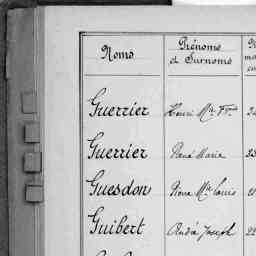 Noms Prénoms et Surnoms
Guerrier Henri Mie
Guerrier René Marie
Guesdon Mie Louis
Guibert André Joseph